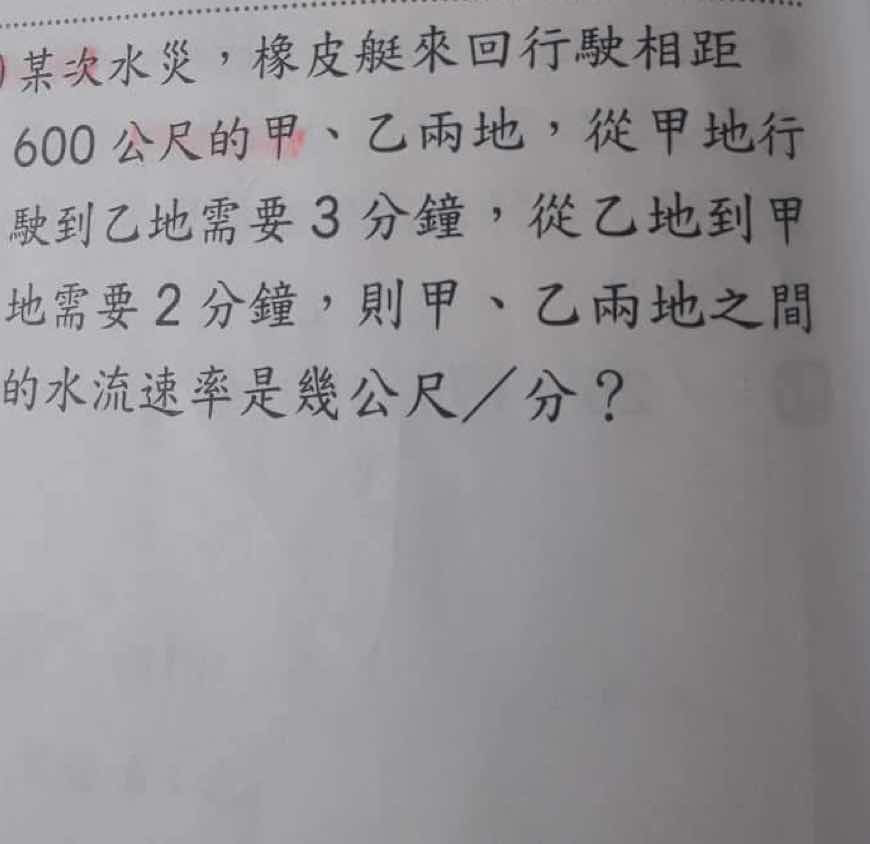 )某次水災，橡皮艇來回行駛相距
600公尺的甲、乙兩地，從甲地行
駛到乙地需要3分鐘，從乙地到甲
地需要2分鐘，則甲、乙兩地之間
的水流速率是幾公尺／分？